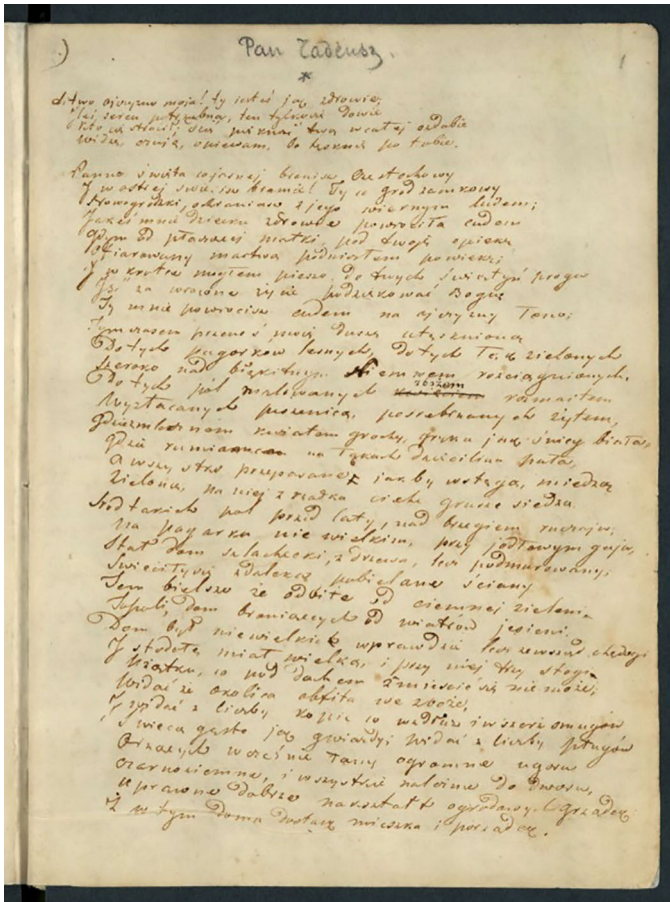 Pan Tadeusz.
1
Litwo ojczyzno moja! ty jesteś jak zdrowie,
Ten tylko się dowie
Kto cię stracił. twą w całej ozdobie
Widzę opisuję, bo tęsknię po tobie.
Panno święta co jasnej bronisz Częstochowy
I w ostrej świecisz bramie! Ty co gród zamkowy
Nowogródzki, ochraniasz z jego wiernym ludem;
Jak mnie dziecko zdrowie powróciłaś cudem
Gdym od płaczącej matki, pod twoją opiekę
Ofiarowany martwą podniosłem powiekę;
I w krotce mogłem pieszo, do twych świątyń progu
Iść za wrócone życie podziękować Bogu
Ty mnie powrócisz cudem na ojczyzny łono;
Tymczasem przenoś moją duszę utęsknioną
Do tych pagórkow leśnych, do tych łąk zielonych
Szeroko nad błękitnym Niemnem rościągnionych,
Do tych pól malowanych zbożem rozmaitem
Wyzłacanych pszenicą, posrebrzanych żytem,
Gdzie kwiatem grochy, gryka jak śnieg biała,
Gdzie na łąkach dzięcielina pała,
A wszystko przepasane jakby wstęgą, miedzą
Zieloną, na niej z rzadka ciche grusze siedzą.
Śród takich pól przed laty, nad brzegiem ruczaju,
Na pagórku nie wielkim, przy jodłowym gaju,
Stał dom szlachecki, z drzewa, lecz podmurowany;
Świeciły się zdaleka pobielane ściany
Tem bielsze że odbite od ciemnej zieleni
Topoli, dom broniących od wiatrów jesieni.
Dom był niewielki wprawdzie lecz zewsząd chędogi
I stodołę miał wielką, i przy niej trzy stogi
Użątku, co pod dachem zmieścić się nie może;
Widać że okolica obfita we zboże,
I widać z liczby kopic co wzdłuż i wszerz smugów
Świecą gęsto jak gwiazdy, widać z liczby pługów
Orzących wcześnie łany ogromne ugoru
Czarnoziemne, i wszystkie należne do dworu,
Uprawne dobrze nakształt ogrodowych grządek:
I w tym domu dostatek mieszka i porządek.